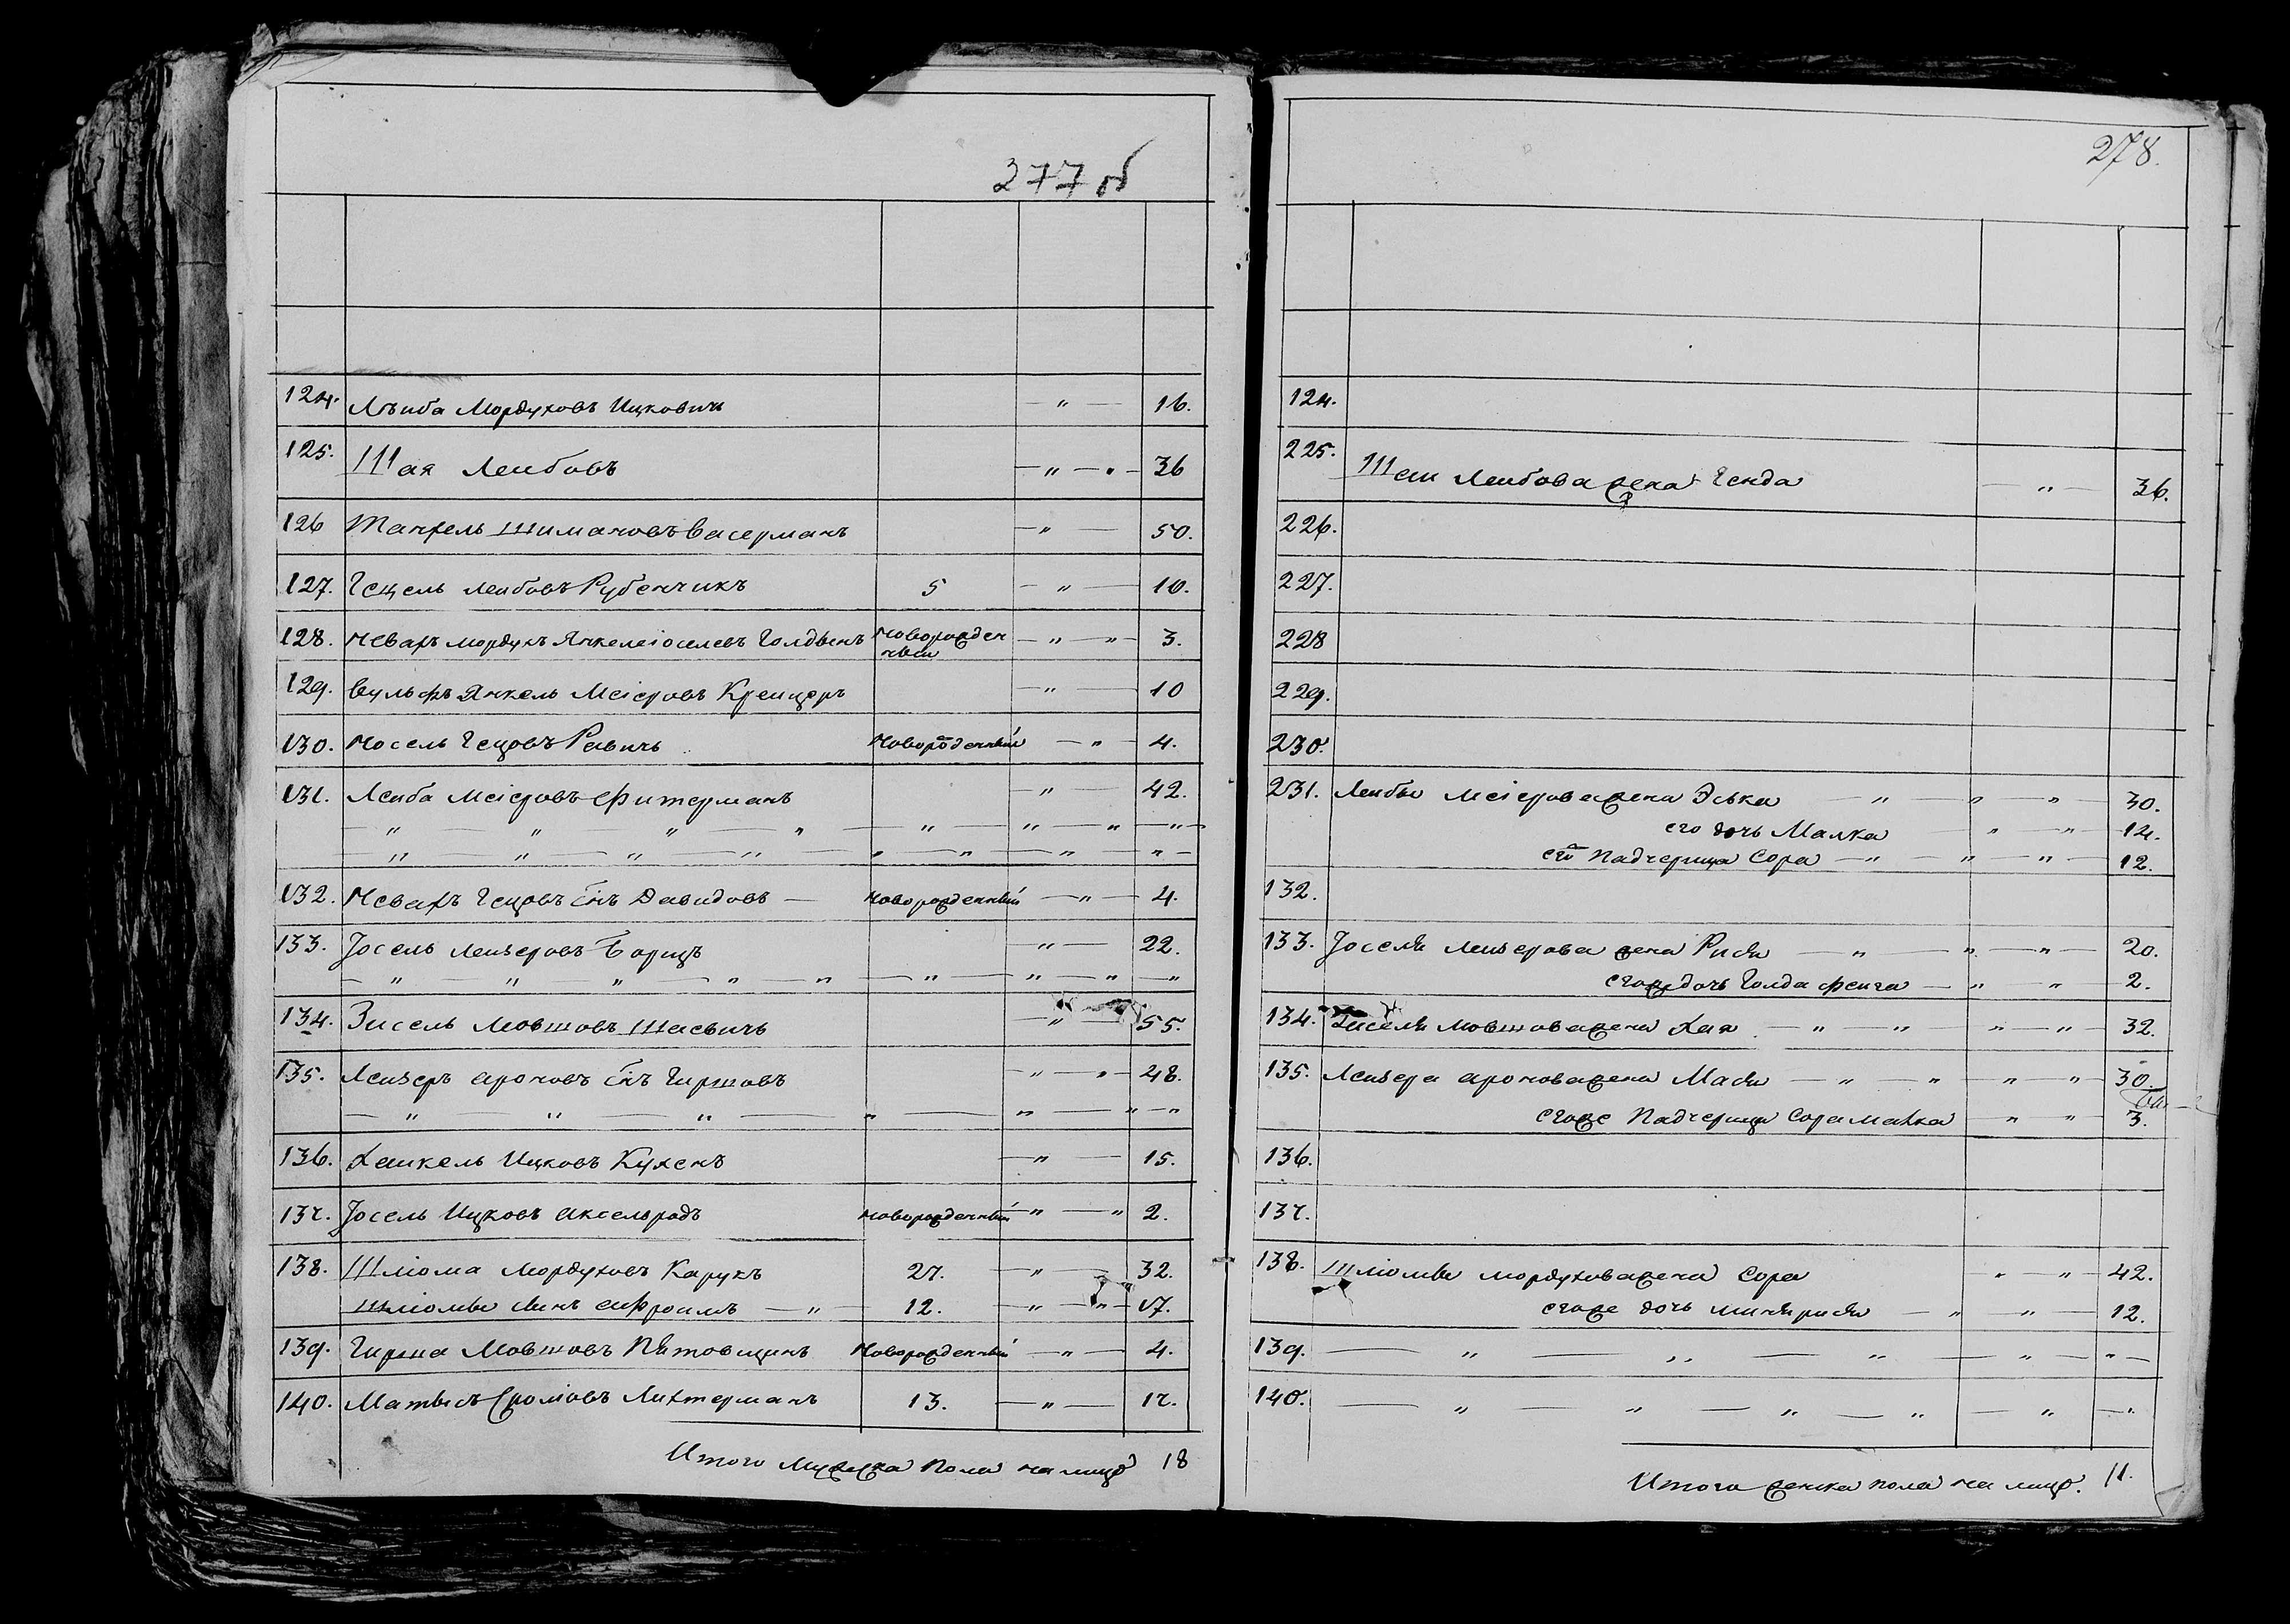 277 об
124. Лъиба Мордуховъ Ицковичъ — " — 16.
125. Шая Леибовъ — " — " — 36
126 Манхель Шимановъ Васерманъ — " — 50.
127. Гецель Леибовъ Рубенчикъ 5 — " — 10.
128. Невахъ Мордухъ Янкелеіоселевъ Голдвенъ новорожден — " — " — 3.
ный
129. Вульфъ Янкель Меіеровъ Креицеръ — " — 10
130. Носель Гецовъ Равичъ Новорожденный — " — 4.
131. Леиба Меіеровъ Фитерманъ — " — 42.
— " — " — " — " — " — " — " — " —
— " — " — " — " — " — " — " — " —
132. Невахъ Гецовъ бнъ Давидовъ — новорожденный — " — 4.
133. Іосель Леизеровъ Борщъ — " — 22.
— " — " — " — " — " — " — " — " — "
134. Зисель Мовшовъ Шаевичъ — " — 55.
135. Леизеръ Ароновъ бнъ Гиршовъ — " — " — 48.
— " — " — " — " — " — " — "
136. Хаикель Ицковъ Кухенъ — " — 15.
137. Іосель Ицковъ Аксельродъ новорожденный — " — " 2.
138. Шліома Мордуховъ Карукъ 27. — " — 32.
Шліомы сынъ Афроимъ — " — 12. — " — " — 17.
139. Гирша Мовшовъ Пятовщинъ Новорожденный — " — 4.
140. Матысъ Сроліовъ Лихтерманъ 13. — " — 17.
Итого мужска пола на лицо 18
278.
124.
225. Шаи Леибова жена Генда — " — 36.
226.
227.
228
229.
230.
231. Леибы Меіерова жена Эська — " — " — " — 30.
его дочь Малка — " — " — 14.
его падчерица Сора — " — " — " — 12.
132.
133. Іоселя Леизерова жена Рися — " — " — " — 20.
егожъ дочь Голда Феига — " — " — 2.
134. Зиселя Мовшова жена Хая — " — " — " — " — 32.
135. Леизера Аронова жена Мася — " — " — " — " 30.
егоже падчерица Сорамалка " — " 3.
136.
137.
138. Шліомы Мордухова жена Сора " — " — 42.
егоже дочь Минярися — " — " — 12.
139. — " — " — " — " — " —
140. — " — " — " — " — " — "
Итого женска пола на лицо. 11.